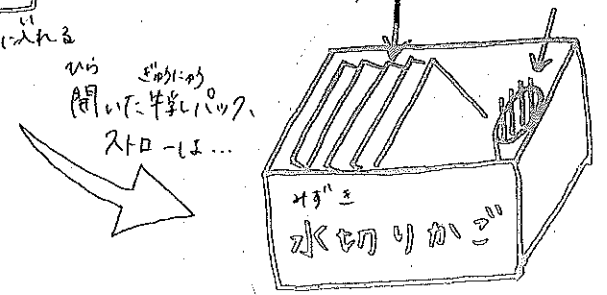 に入れる
開いた牛乳パック、
ストローは…
水切りかご